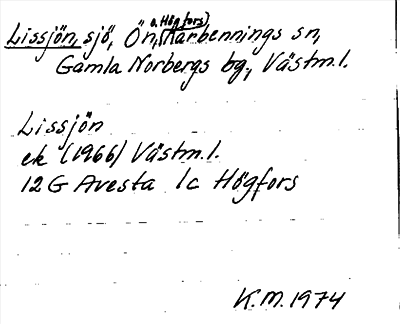 o. Högfors)
Lissjön, sjö, Ön, Karbennings sn,
Gamla Norbergs bg., Västm.l.
Lissjön
ek (1966) Västm.l.
12 G Avesta 1c Högfors
K.M. 1974